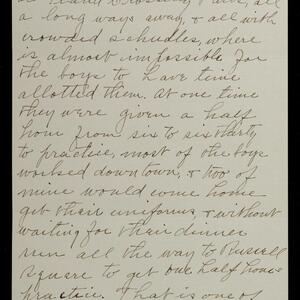 a long ways away, & all with
crowded schudles, where
is almost impossible for
the boys to have time
allotted them. At one time
they were given a half
hour from six to six thirty
to practice, most of the boys
worked downtown, & two of
mine would come home
get their uniforms & without
waiting for their dinner
run all the way to Russell
Square to get one half hour
practice. That is one of